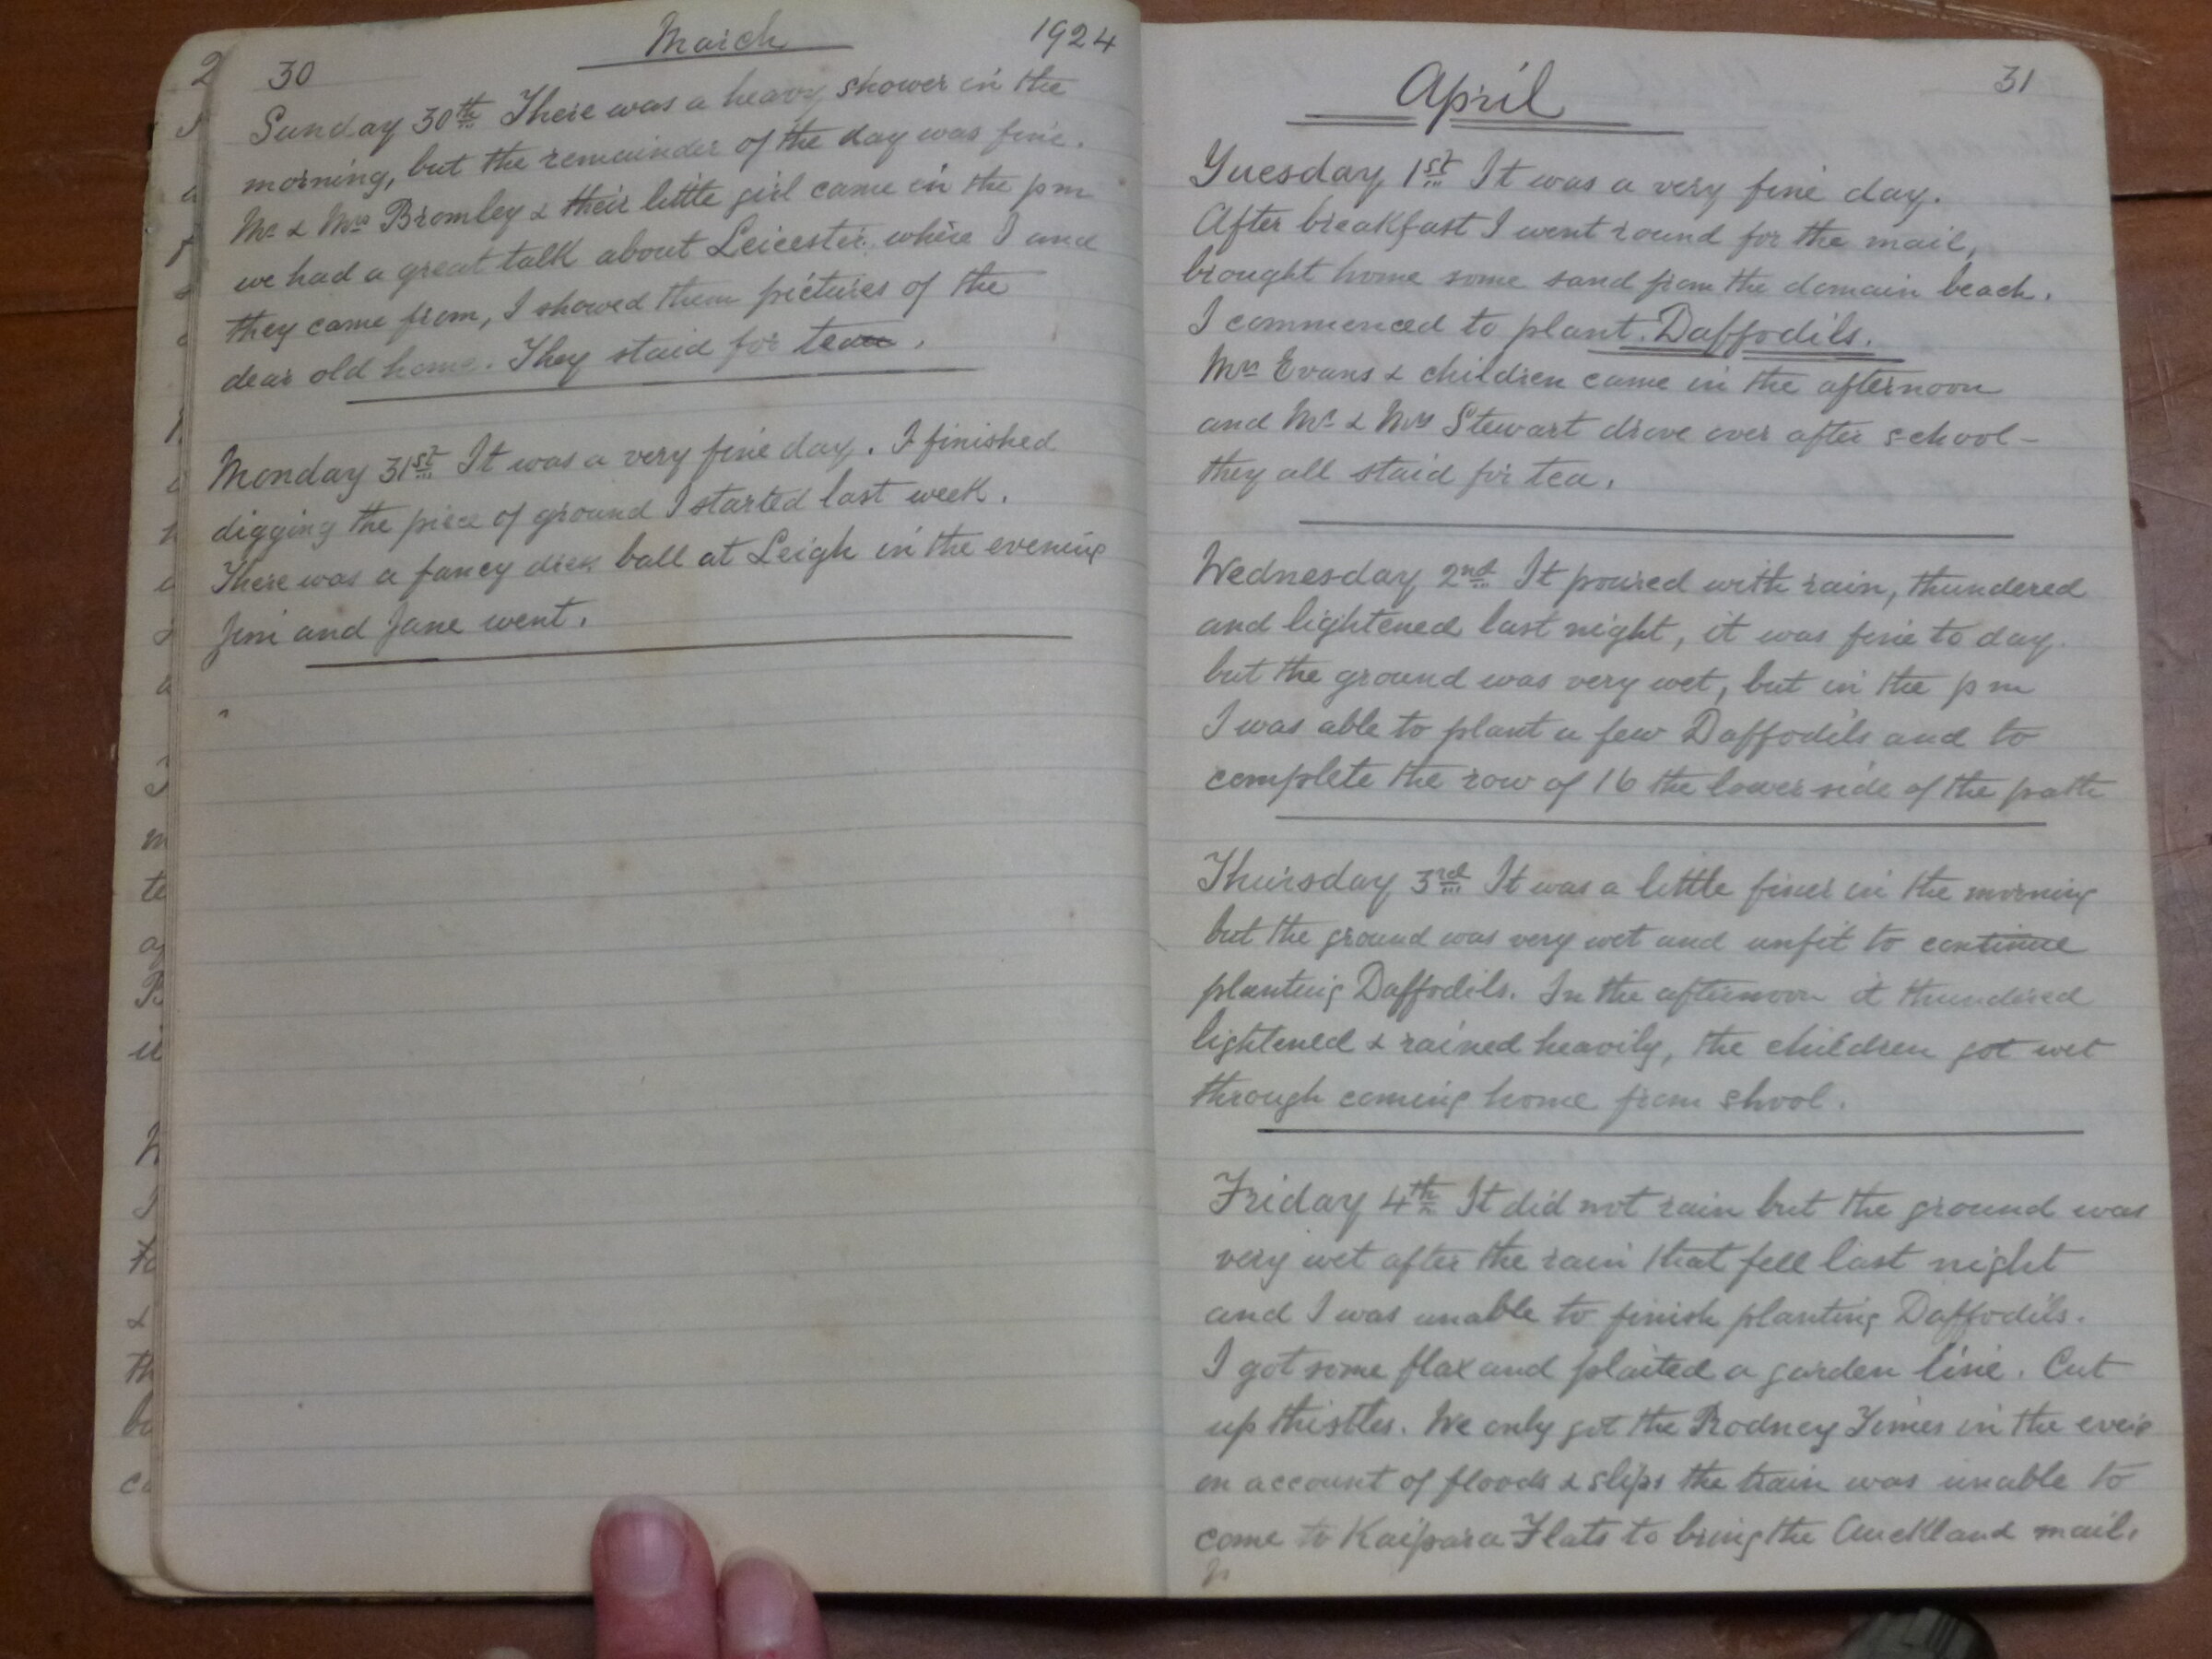 March 1924
30
Sunday 30th There was a heavy shower in the
morning, but the remainder of the day was fine.
Mr & Mrs Bromley & their little girl came in the pm
we had a great talk about Leicester where I and
they came from, I showed them pictures of the
dear old home. They staid for tea.
Monday 31st It was a very fine day. I finished
digging the piece of ground I started last week.
There was a fancy dress ball at Leigh in the evening
Jim and Jane went.
31
April
Tuesday 1st It was a very fine day.
After breakfast I went round for the mail,
brought home some sand from the domain beach.
I commenced to plant. Daffodils.
Mrs Evans & children came in the afternoon
and Mr & Mrs Stewart drove over after school-
they all staid for tea.
Wednesday 2nd It poured with rain, thundered
and lightened last night, it was fine to day.
but the ground was very wet, but in the pm
I was able to plant a few Daffodils and to
complete the row of 16 the lower side of the path
Thursday 3rd It was a little finer in the morning
but the ground was very wet and unfit to continue
planting Daffodils. In the afternoon it thundered
lightened & rained heavily, the children got wet
through coming home from shool.
Friday 4th It did not rain but the ground was
very wet after the rain that fell last night
and I was unable to finish planting Daffodils.
I got some flax and plaited a garden line. Cut
up thistles. We only got the Rodney Times in the
on account of floods & slips the train was unable to
come to Kaipara Flats to bring the Auckland mail.